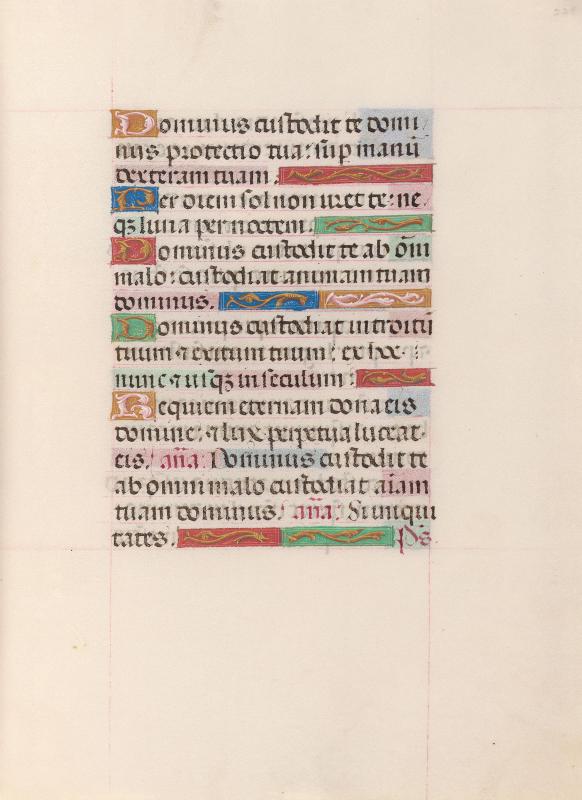 Dominus custodit te domi
nus protectio tua: sup̄ manū
dexteram tuam.
Per diem sol non uret te: ne
qꝫ luna per noctem.
Dominus custodit te ab om̄i
malo: custodiat animam tuam
dominus.
Dominus custodiat introitū
tuum ⁊ exitum tuum: ex hoc
nunc ⁊ usqꝫ in seculum:
Requiem eternam dona eis
domine: ⁊ lux perpetua luceat
eis. an̄a: Dominus custodit te
ab omni malo custodiat aīam
tuam dominus. an̄a: Si iniqui
tates. p̄s.